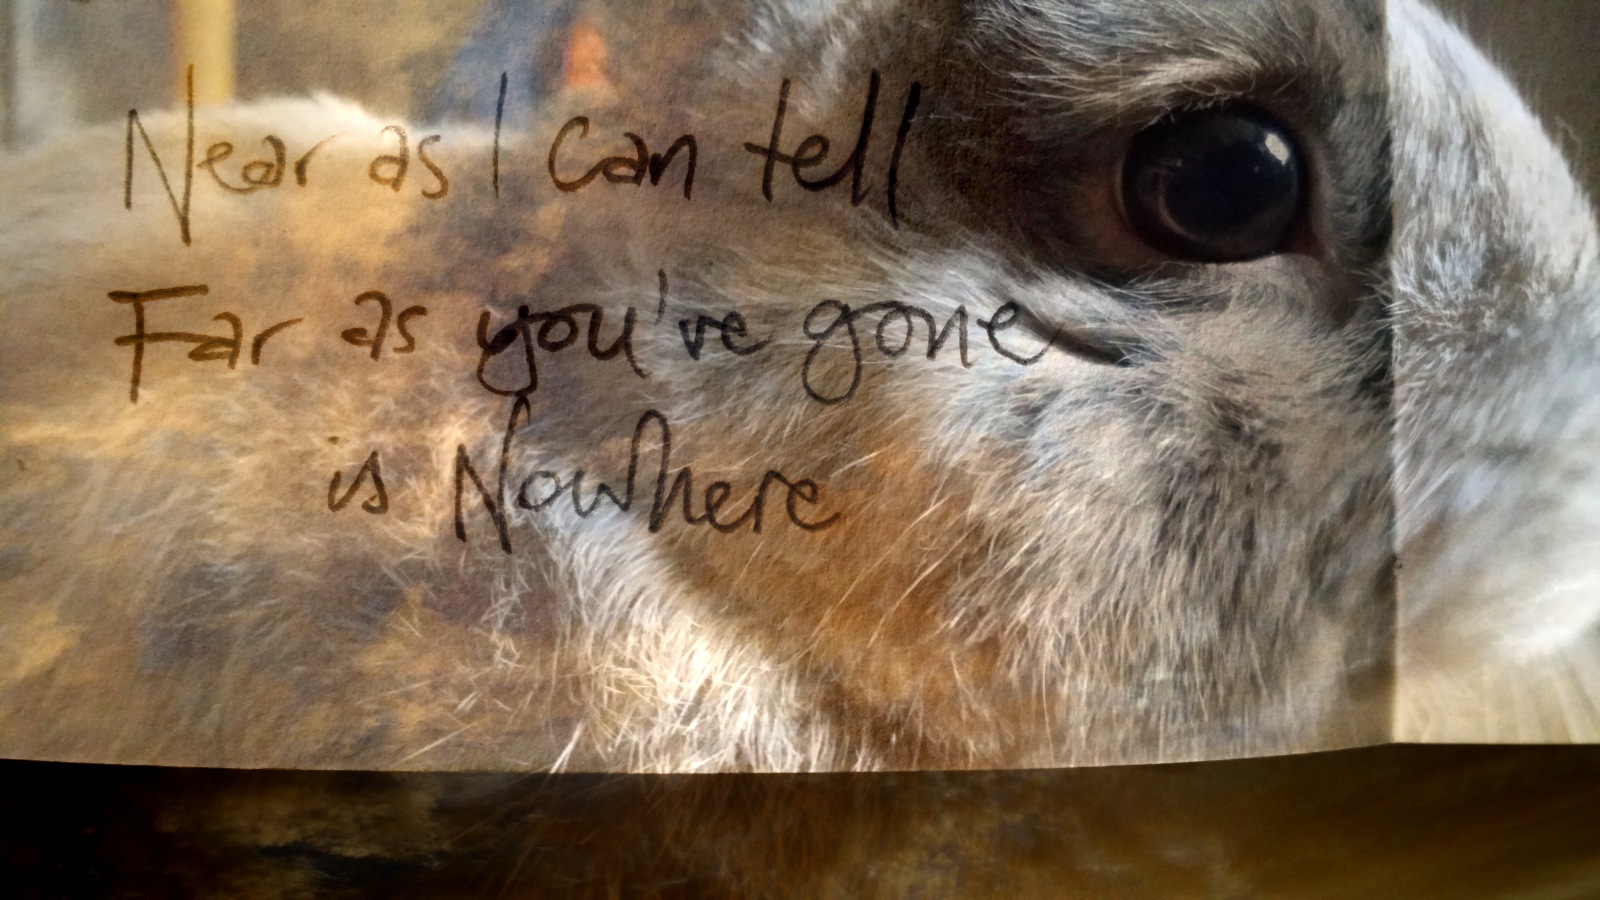 Near as I can tell
Far as you've gone
is Nowhere